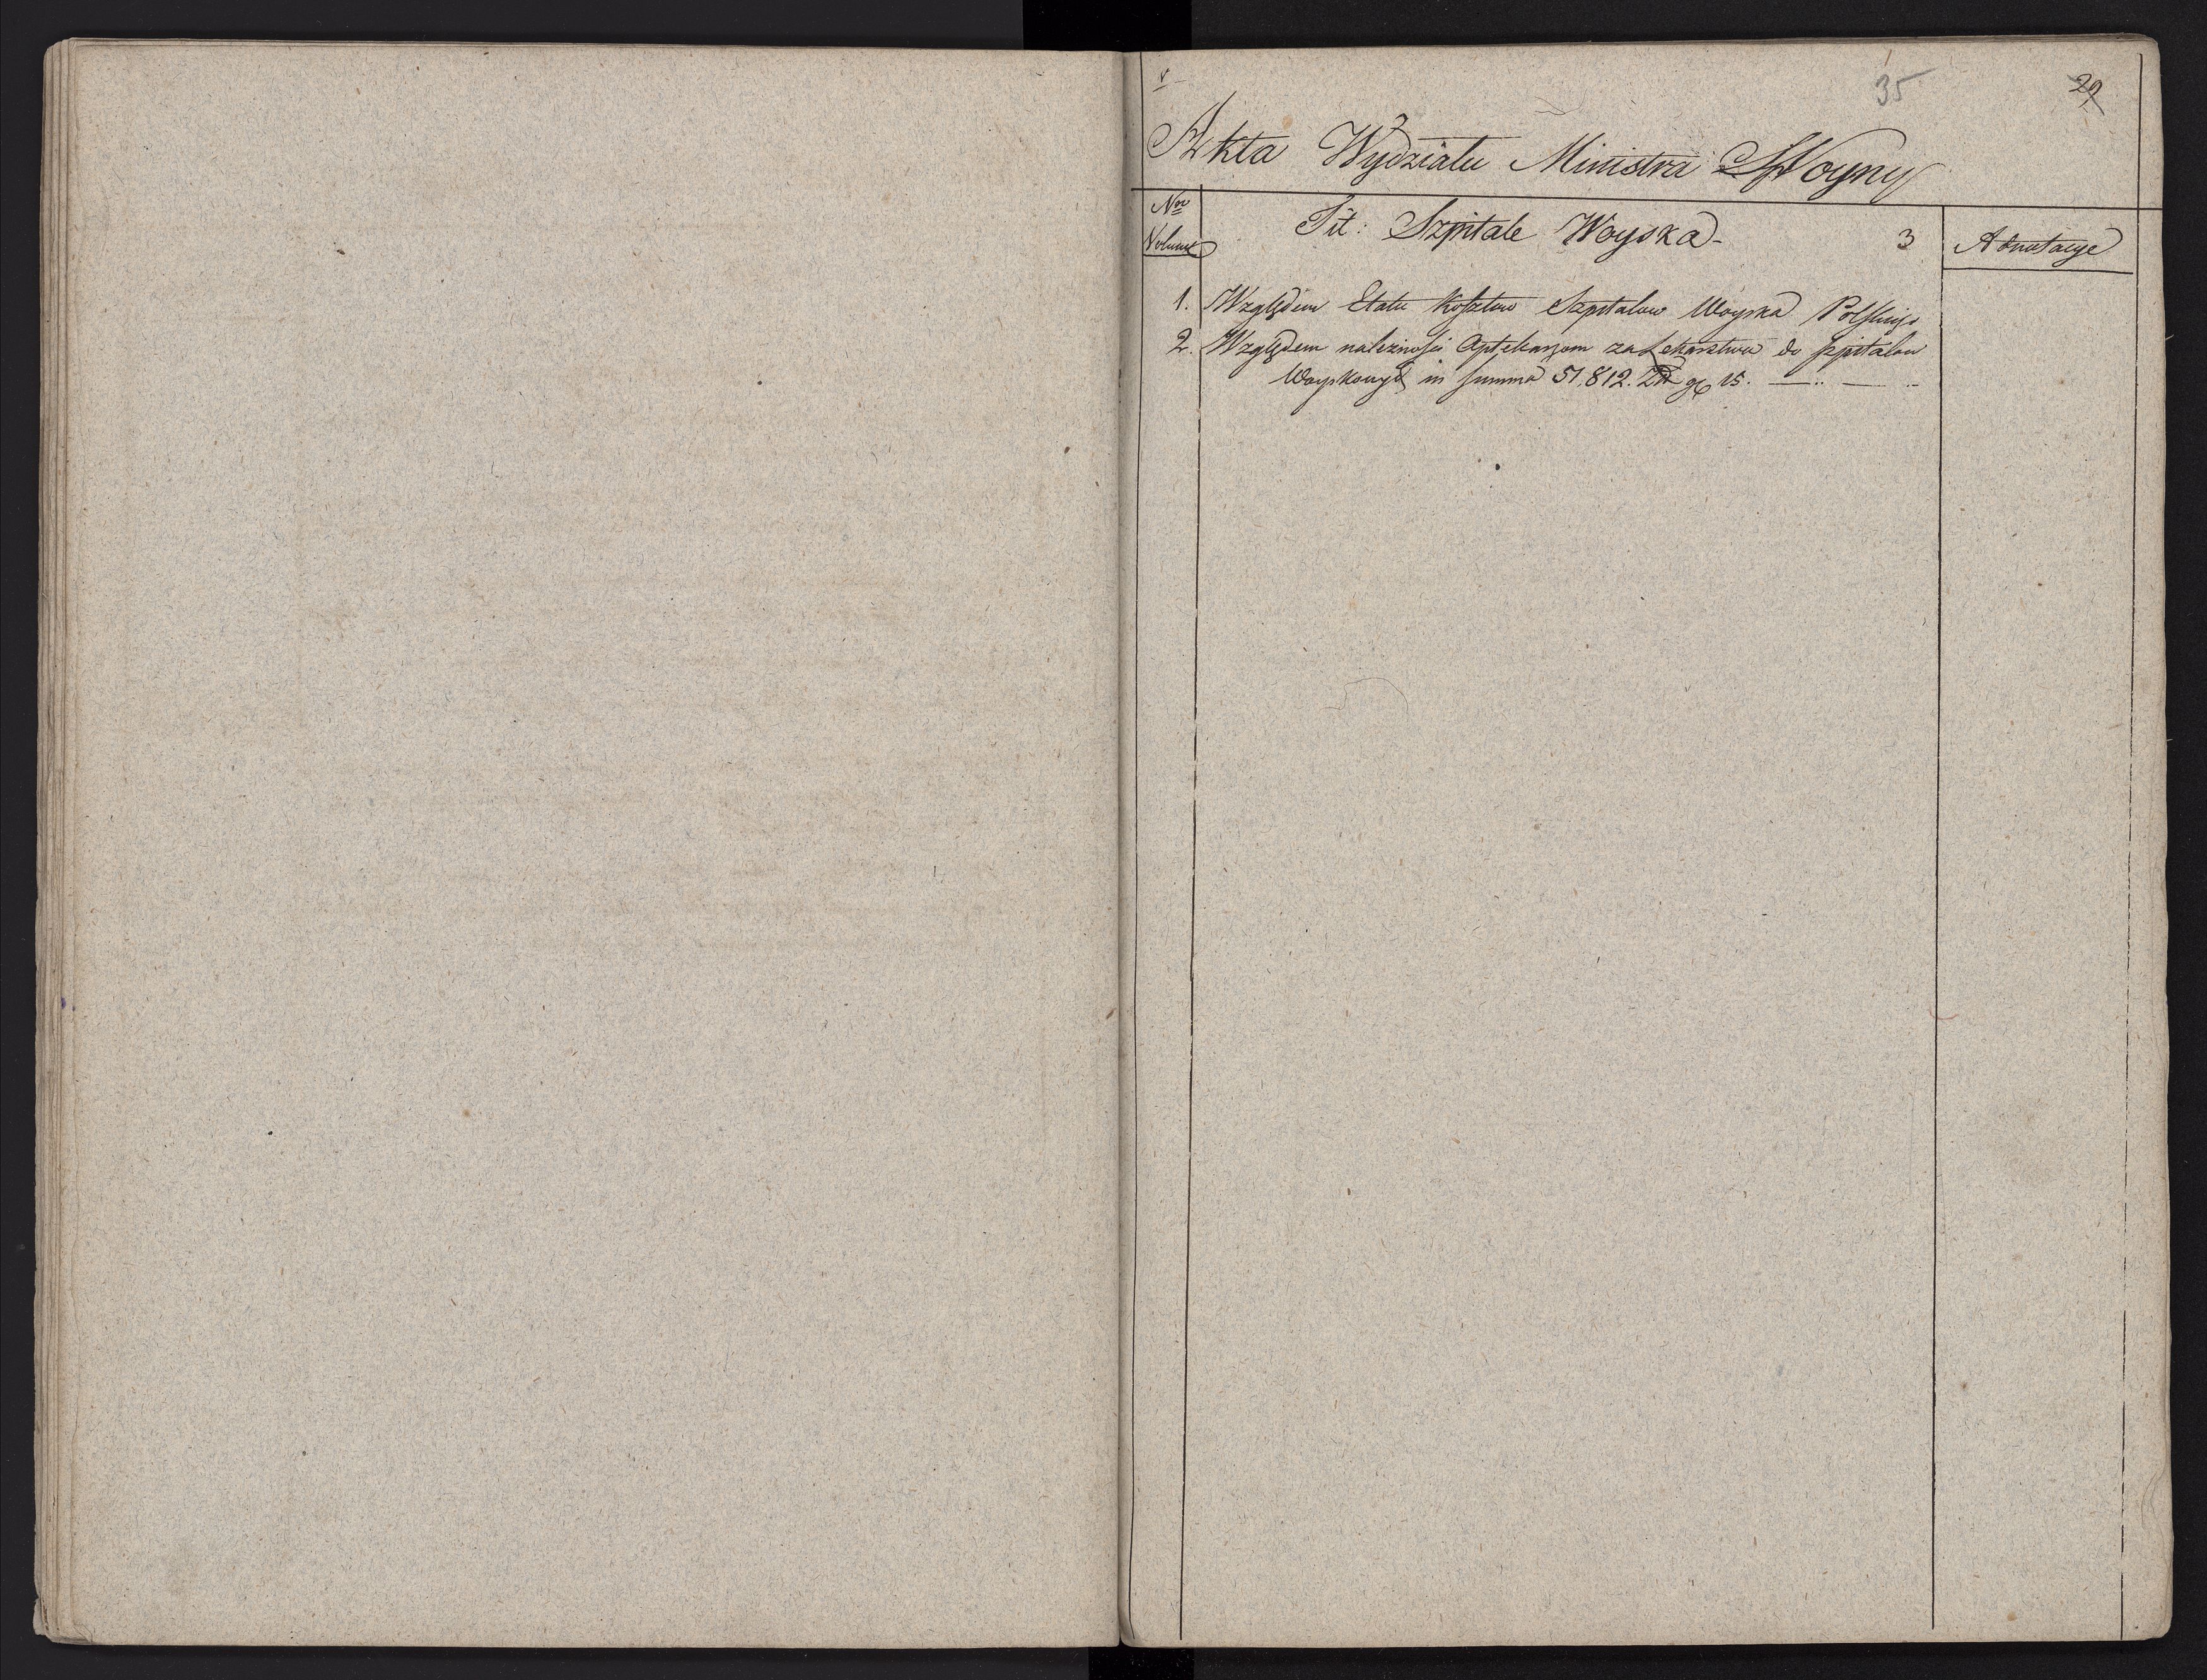 35 29
Akta Wydziału Ministra Woyny
Nro
Volume
Tit: Szpitale Woyska - 3
Adnotacye
1. Względem Etatu Kosztow Szpitalow Woyska Polskiego
2. Względem należności Aptekarzom za Lekarstwa do szpitalow
Woyskowych in summa 51.812. Zł gr 15.